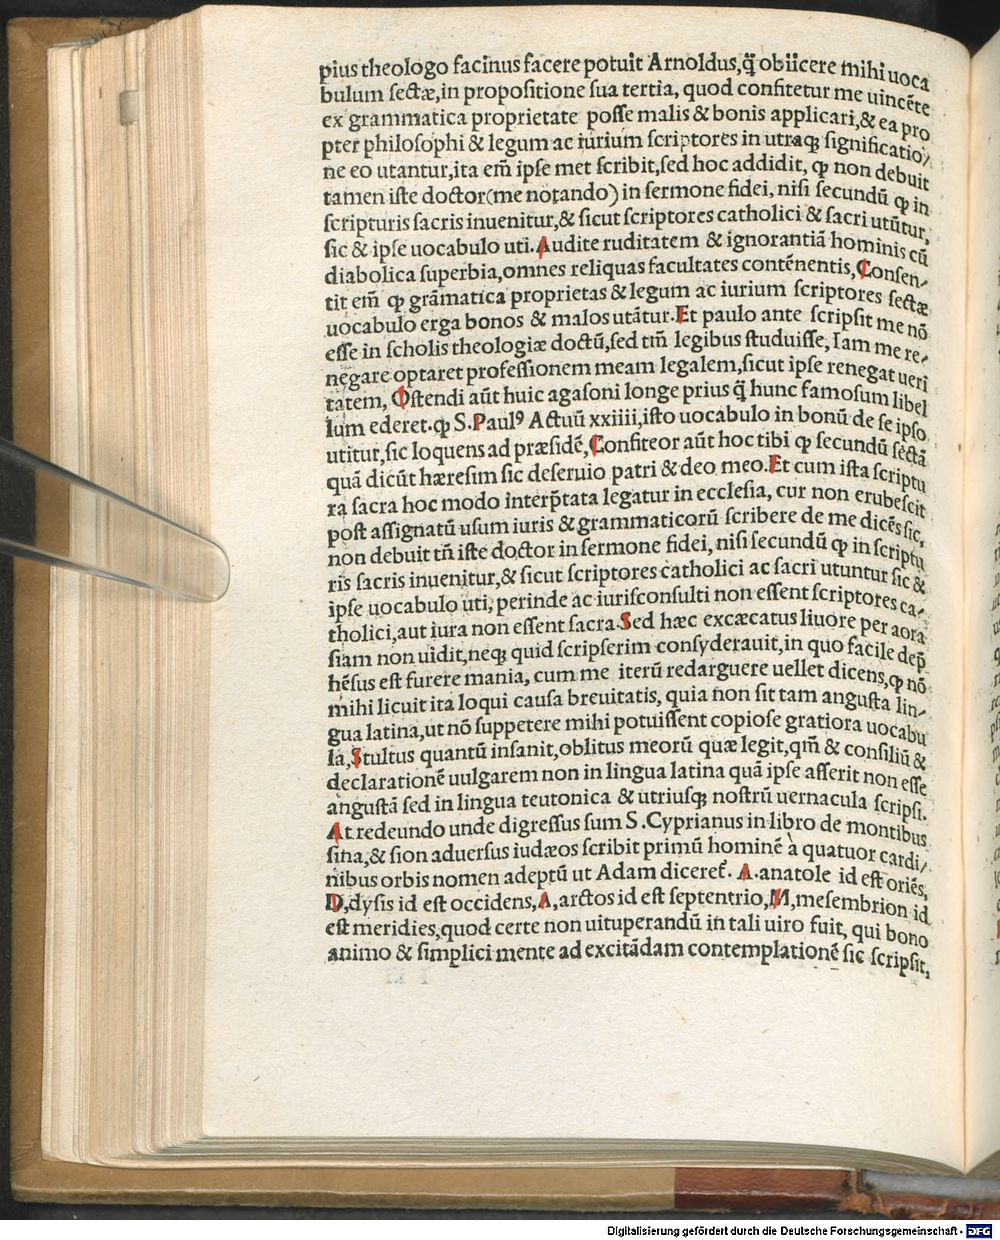 pius theologo facinus facere potuit Arnoldus,q̃ obiicere mihi uoca
bulum sectæ,in propositione sua tertia, quod confitetur me uincẽte
ex grammatica proprietate posse malis & bonis applicari,& ea pro
pter philosophi & legum ac iurium scriptores in utraqꝫ significatio/
ne eo utantur,ita em̃ ipse met scribit,sed hoc addidit, ꝙ non debuit
tamen iste doctor(me notando) in sermone fidei, nisi secundũ ꝙ in
scripturis sacris inuenitur,& sicut scriptores catholici & sacri utũtur,
sic & ipse uocabulo uti.Audite ruditatem & ignorantiã hominis cũ
diabolica superbia,omnes reliquas facultates contẽnentis,Consen/
tit em̃ ꝙ grãmatica proprietas & legum ac iurium scriptores sectæ
uocabulo erga bonos & malos utãtur.Et paulo ante scripsit me nõ
esse in scholis theologiæ doctũ,sed tm̃ legibus studuisse, Iam me re/
negare optaret professionem meam legalem,sicut ipse renegat ueri
tatem, Ostendi aũt huic agasoni longe prius q̃ hunc famosum libel
lum ederet.ꝙ S.Paulꝰ Actuũ xxiiii,isto uocabulo in bonũ de se ipso
utitur,sic loquens ad præsidẽ,Confiteor aũt hoc tibi ꝙ secundũ sectã
quã dicũt hæresim sic deseruio patri & deo meo.Et cum ista scriptu
ra sacra hoc modo interp̃tata legatur in ecclesia, cur non erubescit
post assignatũ usum iuris & grammaticorũ scribere de me dicẽs sic,
non debuit tñ iste doctor in sermone fidei, nisi secundũ ꝙ in scriptu
ris sacris inuenitur,& sicut scriptores catholici ac sacri utuntur sic &
ipse uocabulo uti, perinde ac iurisconsulti non essent scriptores ca/
tholici,aut iura non essent sacra.Sed hæc excæcatus liuore per aora
siam non uidit,neqꝫ quid scripserim consyderauit,in quo facile dep̃
hẽsus est furere mania, cum me iterũ redarguere uellet dicens,ꝙ nõ
mihi licuit ita loqui causa breuitatis, quia non sit tam angusta lin/
gua latina,ut nõ suppetere mihi potuissent copiose gratiora uocabu
la,Stultus quantũ insanit,oblitus meorũ quæ legit,qm̃ & consiliũ &
declarationẽ uulgarem non in lingua latina quã ipse asserit non esse
angustã sed in lingua teutonica & utriusqꝫ nostrũ uernacula scripsi.
At redeundo unde digressus sum S.Cyprianus in libro de montibus
sina,& sion aduersus iudæos scribit primũ hominẽ à quatuor cardi/
nibus orbis nomen adeptũ ut Adam diceret̃. A.anatole id est oriẽs,
D,dysis id est occidens,A,arctos id est septentrio,M,mesembrion id
est meridies,quod certe non uituperandũ in tali uiro fuit, qui bono
animo & simplici mente ad excitãdam contemplationẽ sic scripsit,
Digitalisierung gefördert durch die Deutsche Forschungsgemeinschaft - DFG